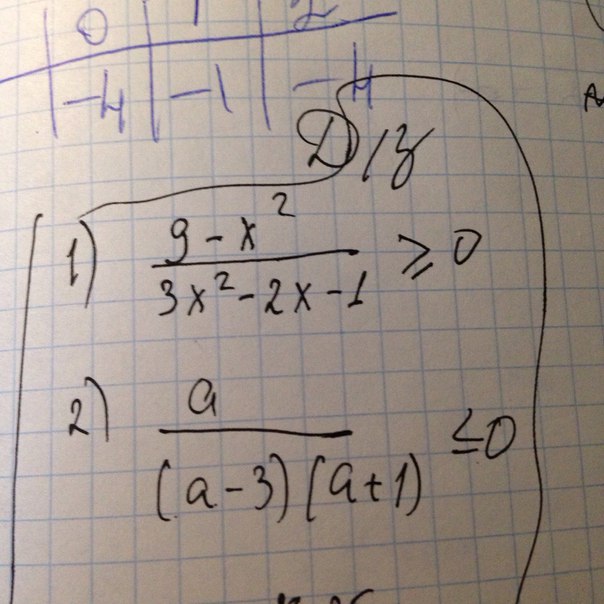 0 1 2
-4 -1 -4
Д/з
1) (9 - x²)/(3x² - 2x - 1) ≥ 0
2) a/((a - 3)(a + 1)) ≤ 0